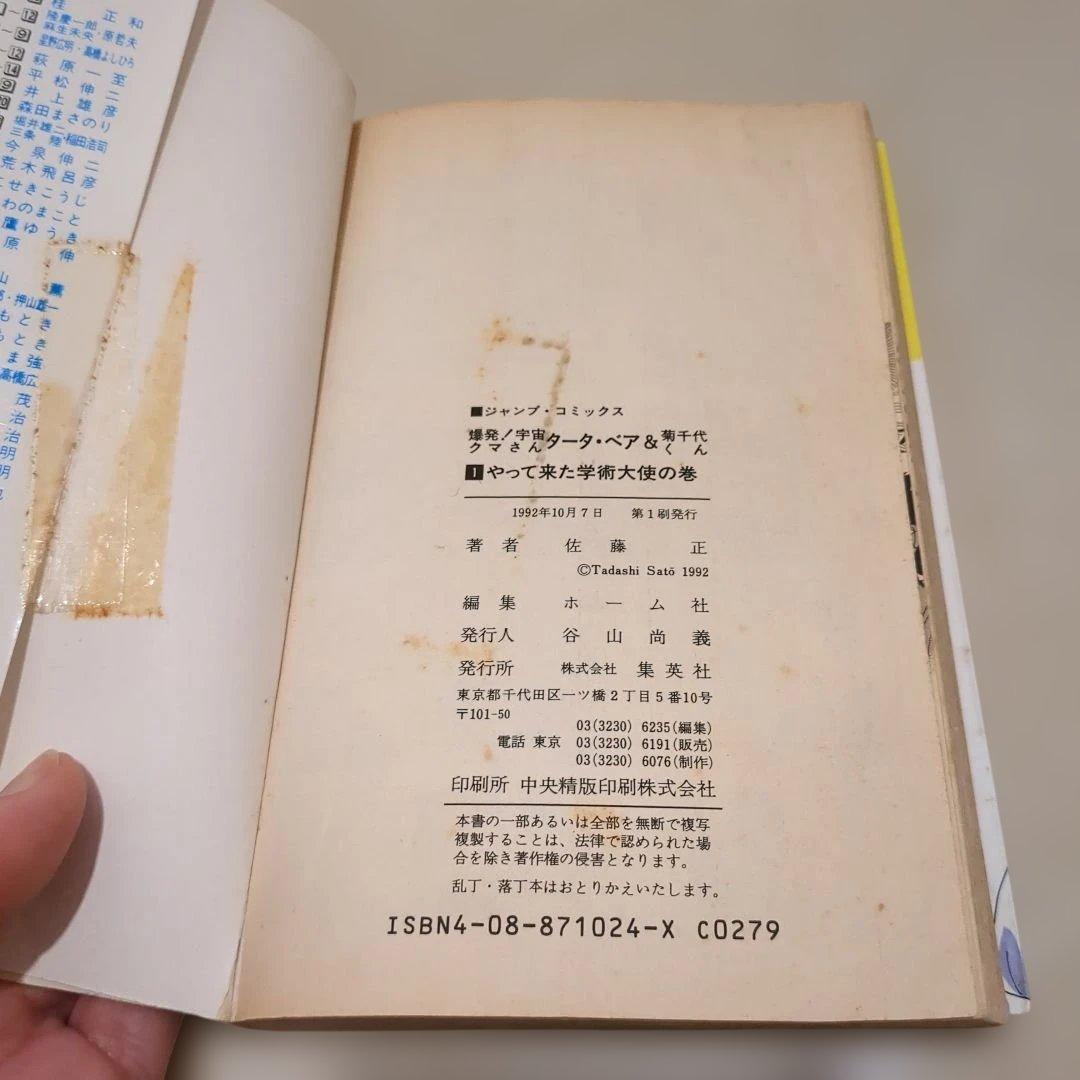 桂 正和
隆慶一郎
麻生未央・原哲夫
星野広明・高橋よしひろ
萩原一至
平松伸二
井上雄彦
森田まさのり
堀井雄二
三条 陸・稲田浩司
今泉伸二
荒木飛呂彦
せきこうじ
わのまこと
鷹ゆうき
原 伸
山 薫
押山雄一
もとき
もとき
ま強
高橋広
茂
治
治
明
明
■ジャンプ・コミックス
爆発!宇宙クマさんタータ・ベア&菊千代くん
1やって来た学術大使の巻
1992年10月7日 第1刷発行
著者 佐藤 正
©Tadashi Satō 1992
編集 ホーム社
発行人 谷山尚義
発行所 株式会社 集英社
東京都千代田区一ツ橋2丁目5番10号
〒101-50
03(3230) 6235(編集)
電話 東京 03(3230) 6191(販売)
03(3230) 6076(制作)
印刷所 中央精版印刷株式会社
本書の一部あるいは全部を無断で複写
複製することは、法律で認められた場
合を除き著作権の侵害となります。
乱丁・落丁本はおとりかえいたします。
ISBN4-08-871024-X C0279